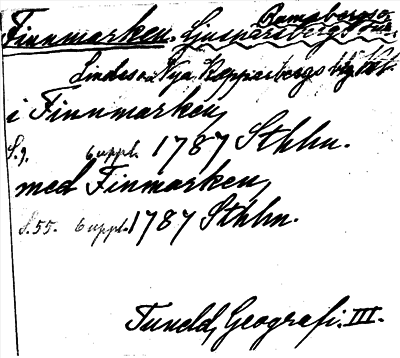 Ramsbergs o.
Finnmarken. Ljusnarsbergs sn.
Lindes o. Nya Kopparbergs bg Vstm.
i Finnmarken,
S. 9. 6 uppl. 1787 Sthlm.
med Finmarken,
S. 55. 6 uppl. 1787 Sthlm.
Tuneld, Geografi. III.